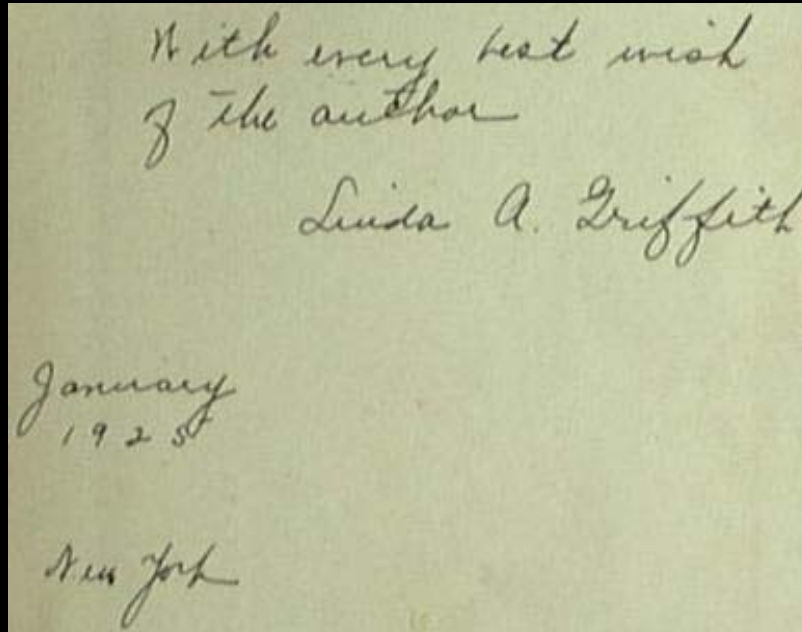 With every best wish
of the author
Linda A. Griffith
January
1925
New York